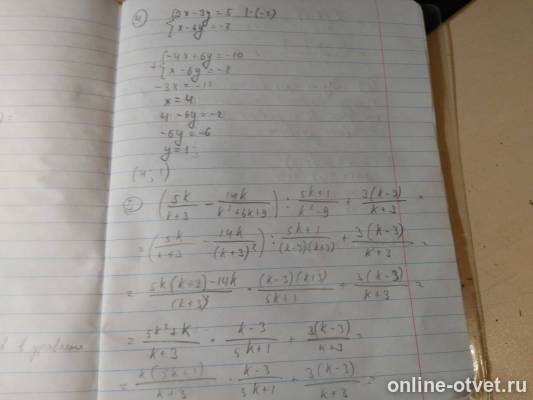 4) { 2x-3y=5 |·(-2)
{ x-6y=-2
+ { -4x+6y=-10
{ x-6y=-2
-3x=-12
x=4
4-6y=-2
-6y=-6
y=1
(4;1)
(5k/(k+3) - 14k/(k²+6k+9)) : (5k+1)/(k²-9) + 3(k-3)/(k+3) =
= (5k/(k+3) - 14k/(k+3)²) : (5k+1)/((k-3)(k+3)) + 3(k-3)/(k+3) =
= (5k(k+3)-14k)/(k+3)² · (k-3)(k+3)/(5k+1) + 3(k-3)/(k+3) =
= (5k²+k)/(k+3) · (k-3)/(5k+1) + 3(k-3)/(k+3) =
= k(5k+1)/(k+3) · (k-3)/(5k+1) + 3(k-3)/(k+3) =
в уравнение
online-otvet.ru